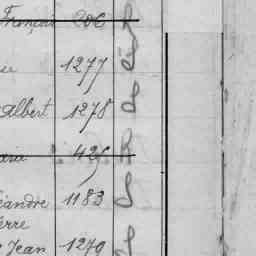 François 206 R
1277 S
Albert 1278 S
Marie 426 R
Léandre 1183 S
Pierre
Jean 1279 S